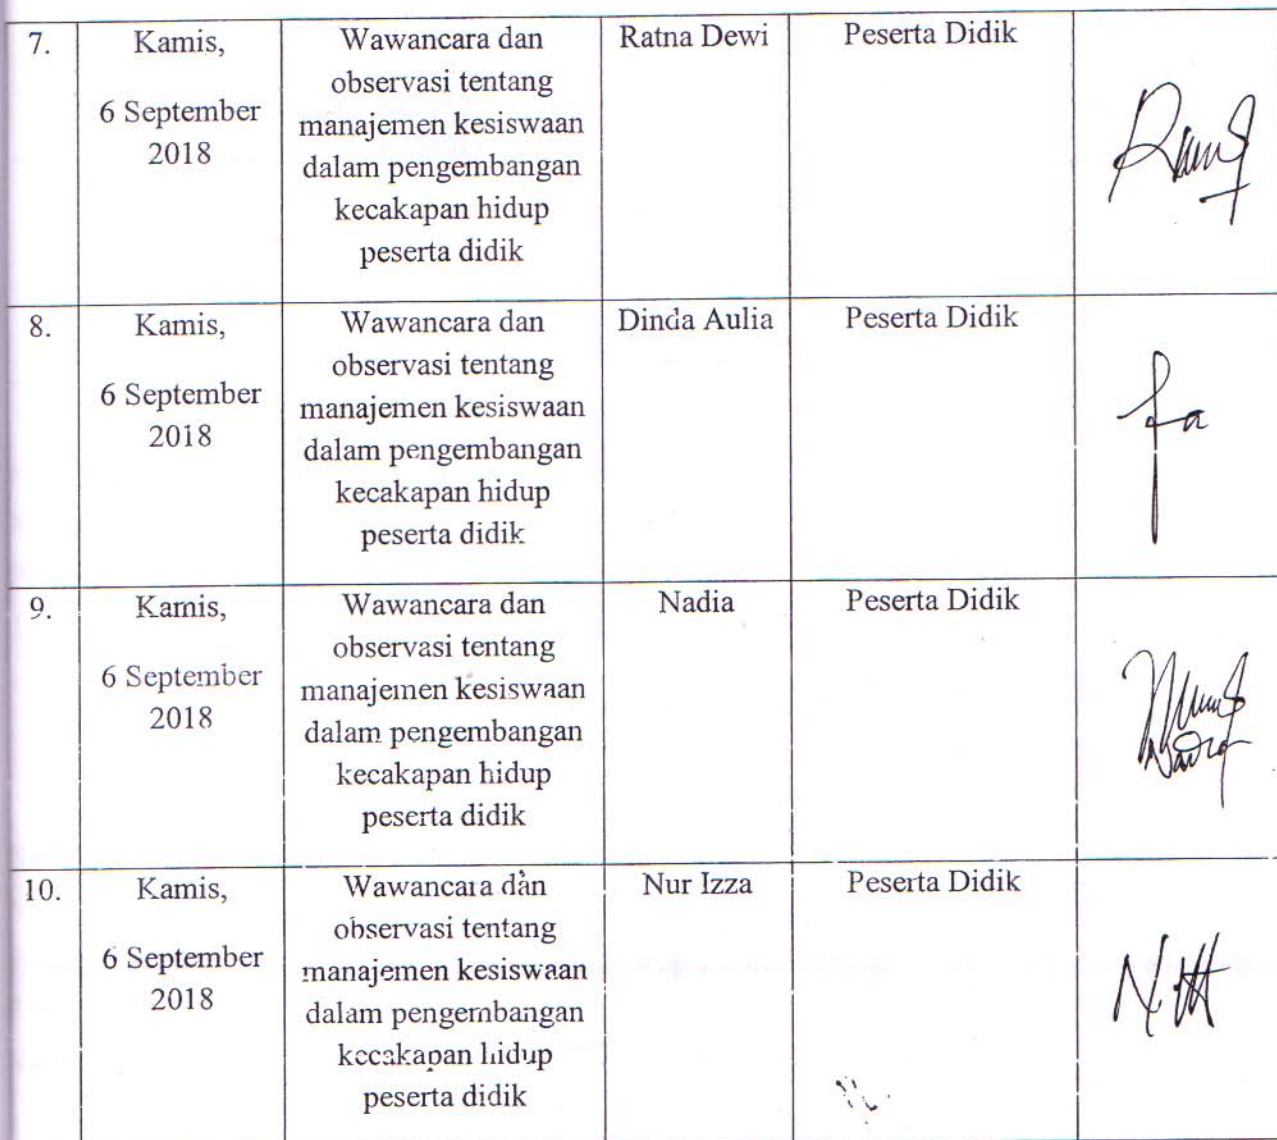 7.
Kamis,
6 September
2018
Wawancara dan
observasi tentang
manajemen kesiswaan
dalam pengembangan
kecakapan hidup
peserta didik
Ratna Dewi
Peserta Didik
8.
Kamis,
6 September
2018
Wawancara dan
observasi tentang
manajemen kesiswaan
dalam pengembangan
kecakapan hidup
peserta didik
Dinda Aulia
Peserta Didik
9.
Kamis,
6 September
2018
Wawancara dan
observasi tentang
manajemen kesiswaan
dalam pengembangan
kecakapan hidup
peserta didik
Nadia
Peserta Didik
10.
Kamis,
6 September
2018
Wawancara dan
observasi tentang
manajemen kesiswaan
dalam pengembangan
kecakapan hidup
peserta didik
Nur Izza
Peserta Didik